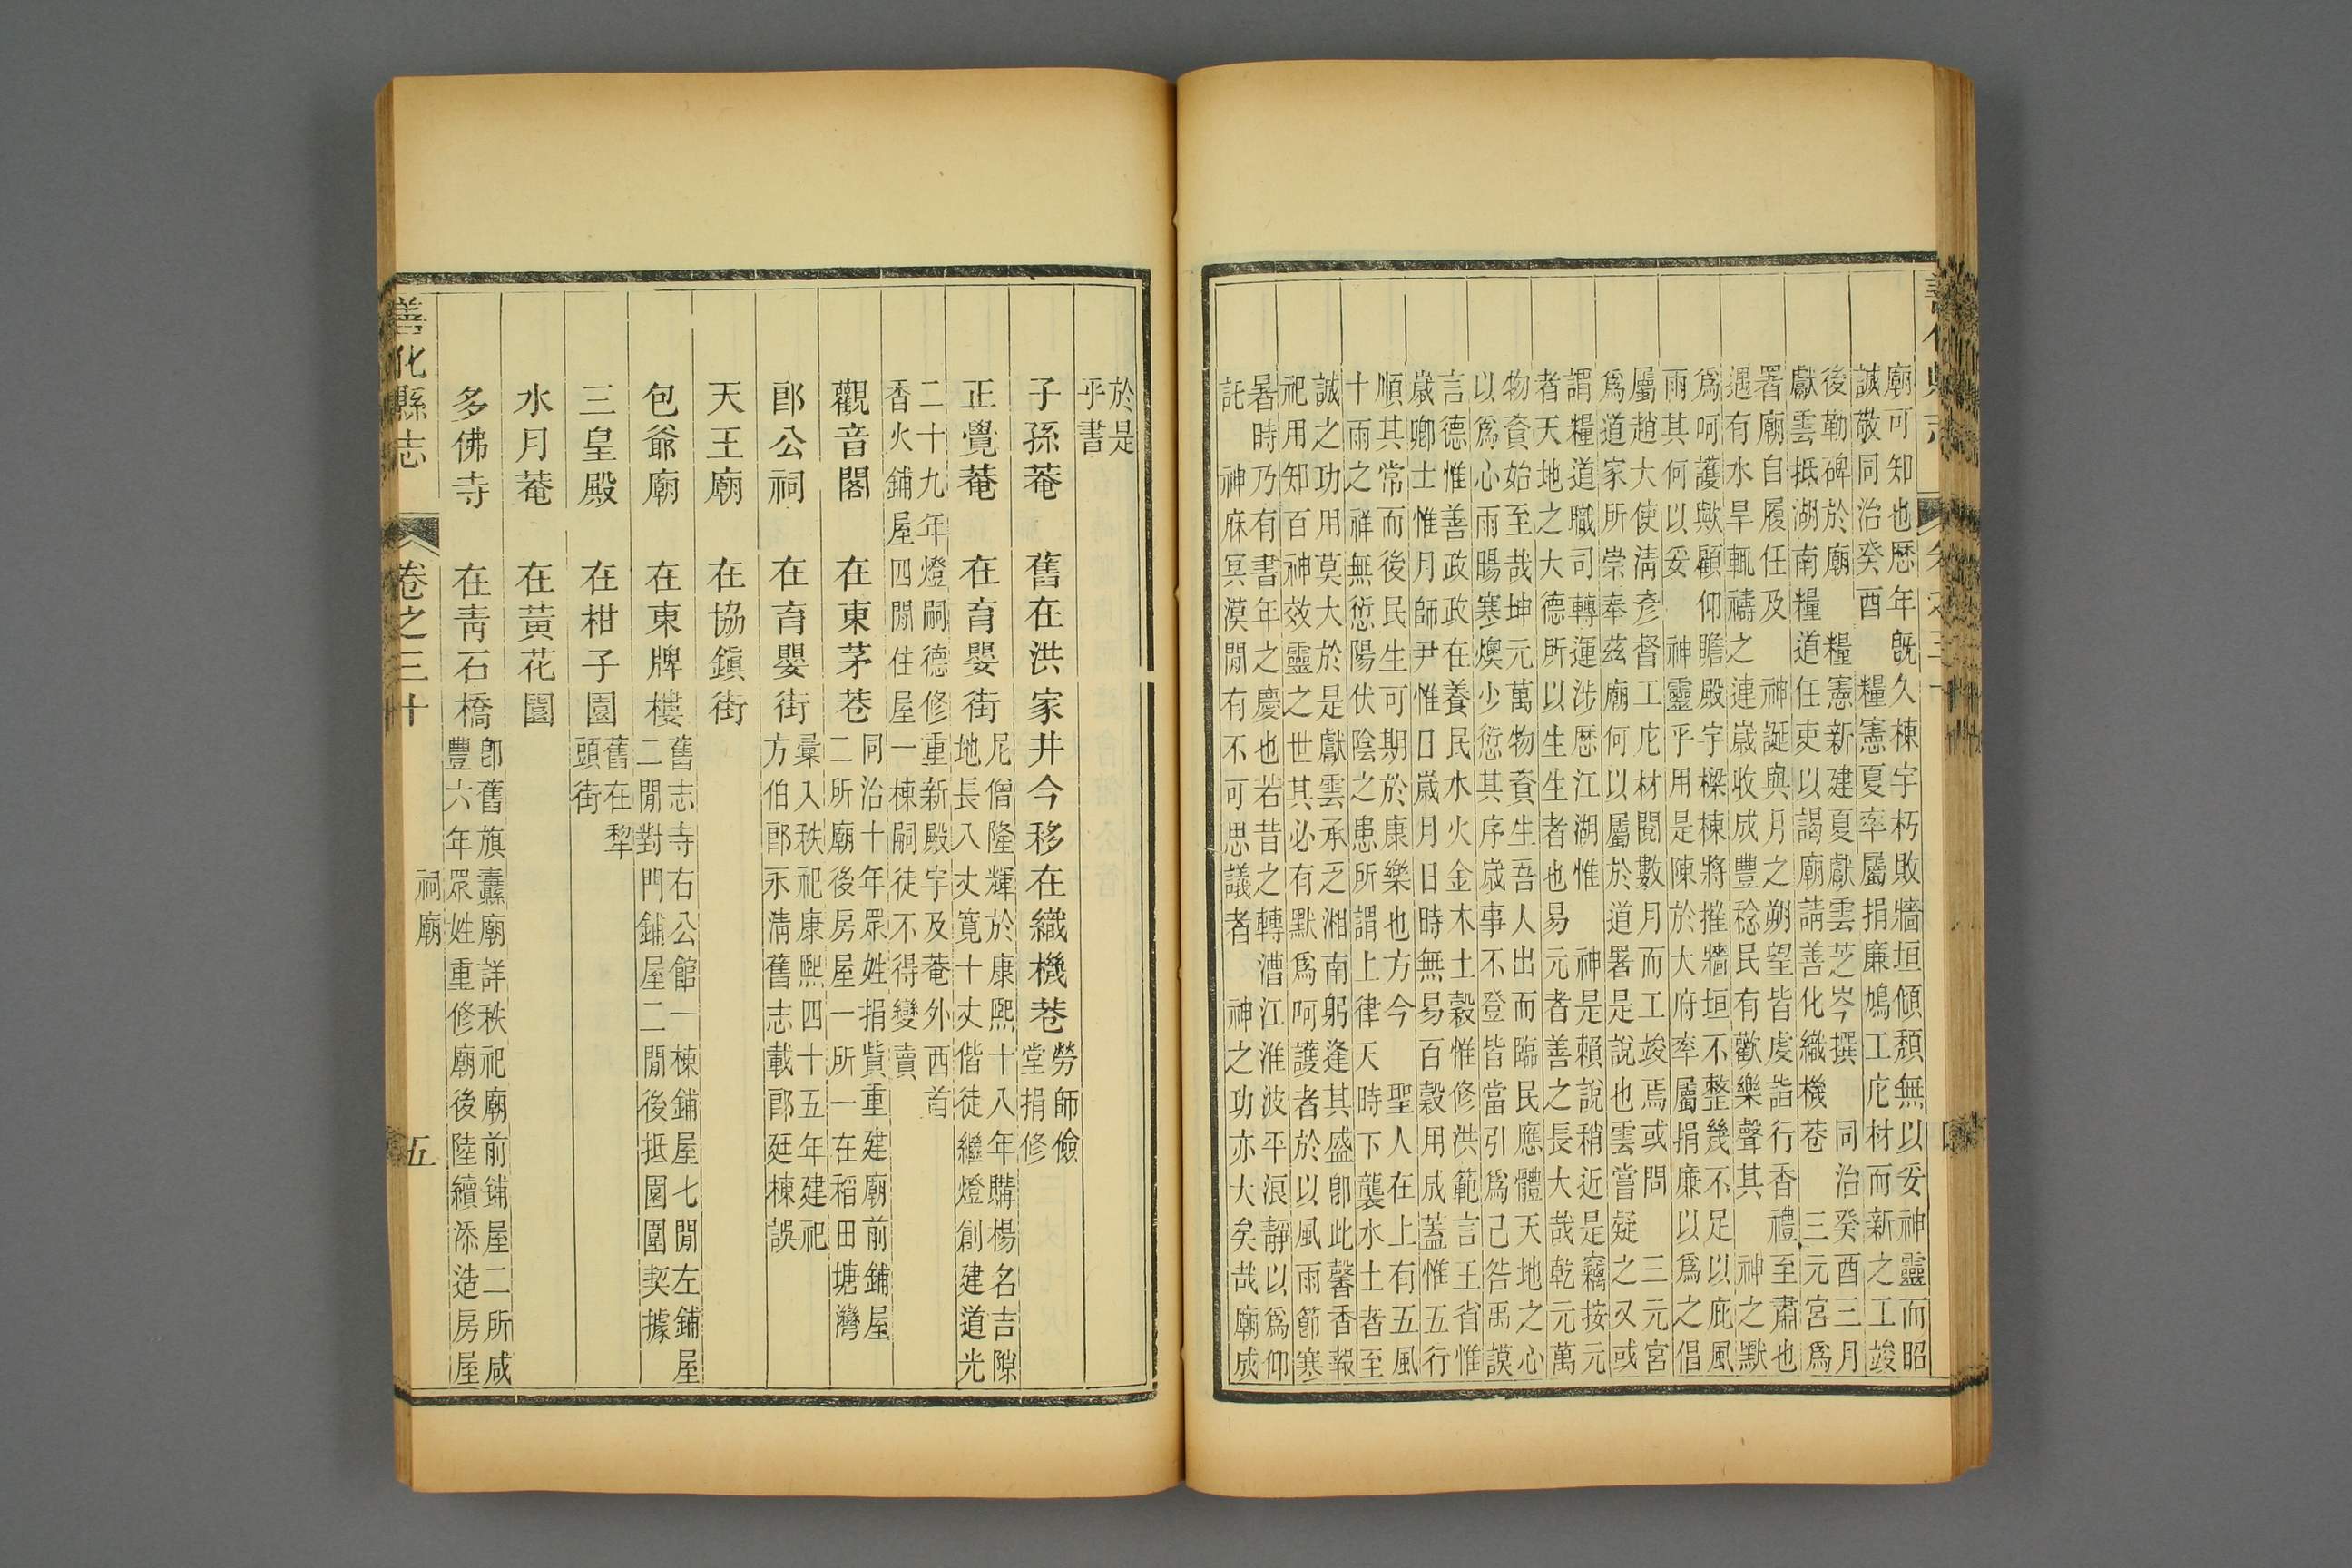 廟可知也歷年旣久棟宇朽敗牆垣傾頹無以妥神靈而昭
誠敬同治癸酉 糧憲夏率屬捐廉鳩工庀材而新之工竣
後勒碑於廟 糧憲新建夏獻雲芝岑撰 同治癸酉三月
獻雲抵湖南糧道任吏以謁廟請善化織機巷 三元宮爲
署廟自履任及 神誕與月之朔望皆虔詣行香禮至肅也
遇有水旱輒禱之連歲收成豐稔民有歡樂聲其 神之默
爲呵護歟顧仰瞻殿宇樑棟將摧牆垣不整幾不足以庇風
雨其何以妥 神靈乎用是陳於大府率屬捐廉以爲之倡
屬趙大使淸彥督工庀材閱數月而工竣焉或問 三元宮
爲道家所崇奉茲廟何以屬於道署是說也雲嘗疑之又或
謂糧道職司轉運涉歷江湖惟 神是賴說稍近是竊按元
者天地之大德所以生生者也易 元者善之長大哉乾元萬
物資始至哉坤元萬物資生吾人出而臨民應體天地之心
以爲心雨暘寒燠少愆其序歲事不登皆當引爲己咎禹謨
言德惟善政政在養民水火金木土穀惟修洪範言王省惟
歲卿士惟月師尹惟日歲月日時無易百穀用成蓋惟五行
順其常而後民生可期於康樂也方今 聖人在上有五風
十雨之祥無愆陽伏陰之患所謂上律天時下襲水土者至
誠之功用莫大於是獻雲承乏湘南躬逢其盛卽此馨香報
祀用知百神效靈之世其必有默爲呵護者於以風雨節寒
暑時乃有書年之慶也若昔之轉漕江淮波平浪靜以爲仰
託 神庥冥漠閒有不可思議者 神之功亦大矣哉廟成
於是
乎書
子孫菴 舊在洪家井今移在織機巷 勞師儉
堂捐修
正覺菴 在育嬰街 尼僧隆輝於康熙十八年購楊名吉隙
地長八丈寬十丈偕徒繼燈創建道光
二十九年燈嗣德修重新殿宇及菴外西首
香火鋪屋四閒住屋一棟嗣徒不得變賣
觀音閣 在東茅巷 同治十年眾姓捐貲重建廟前鋪屋
二所廟後房屋一所一在稻田塘灣
郎公祠 在育嬰街 彙入秩祀康熙四十五年建祀
方伯郎永淸舊志載郎廷棟誤
天王廟 在協鎭街
包爺廟 在東牌樓 舊志寺右公館一棟鋪屋七閒左鋪屋
二閒對門鋪屋二閒後抵園圍契據
三皇殿 在柑子園 舊在犂
頭街
水月菴 在黃花園
多佛寺 在靑石橋 卽舊旗纛廟詳秩祀廟前鋪屋二所咸
豐六年眾姓重修廟後陸續添造房屋
善化縣志 卷之三十 祠廟 五